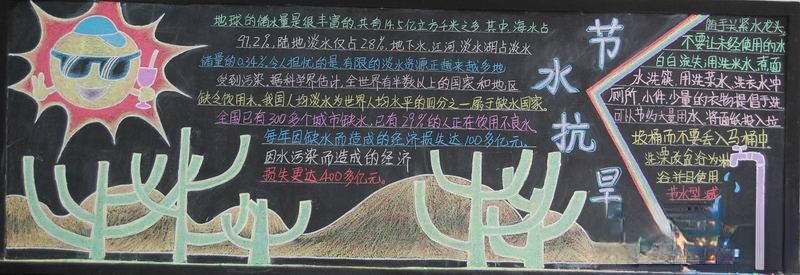 地球的储水量是很丰富的,共有14.5亿立方千米之多.其中,海水占
97.2%,陆地淡水仅占2.8%,地下水,江河淡水湖占淡水
储量的0.34%.令人担忧的是,有限的淡水资源正越来越多地
受到污染.据科学界估计,全世界有半数以上的国家和地区
缺乏饮用水.我国人均淡水为世界人均水平的四分之一属于缺水国家.
全国已有300多个城市缺水,已有29%的人正在饮用不良水.
每年因缺水而造成的经济损失达100多亿元.
因水污染而造成的经济
损失更达400多亿元。
节水抗旱
随手关紧水龙头
不要让未经使用的水
白白流失;用洗米水,煮面
水洗碗,用洗菜水,洗衣水冲
厕所,小件,少量的衣物提倡手洗
可以节约大量用水,将面纸投入垃
圾桶而不要丢入马桶中
洗菜
并且使用
节水型